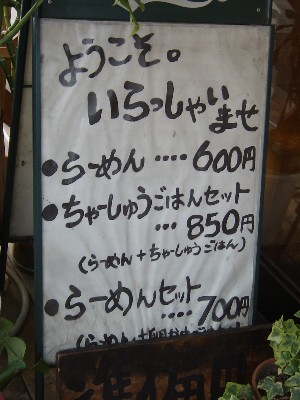 ようこそ。
いらっしゃい
ませ
●らーめん‥‥600円
●ちゃーしゅうごはんセット
‥‥850円
(らーめん+ちゃーしゅうごはん)
●らーめんセット
‥‥700円
(らーめん+